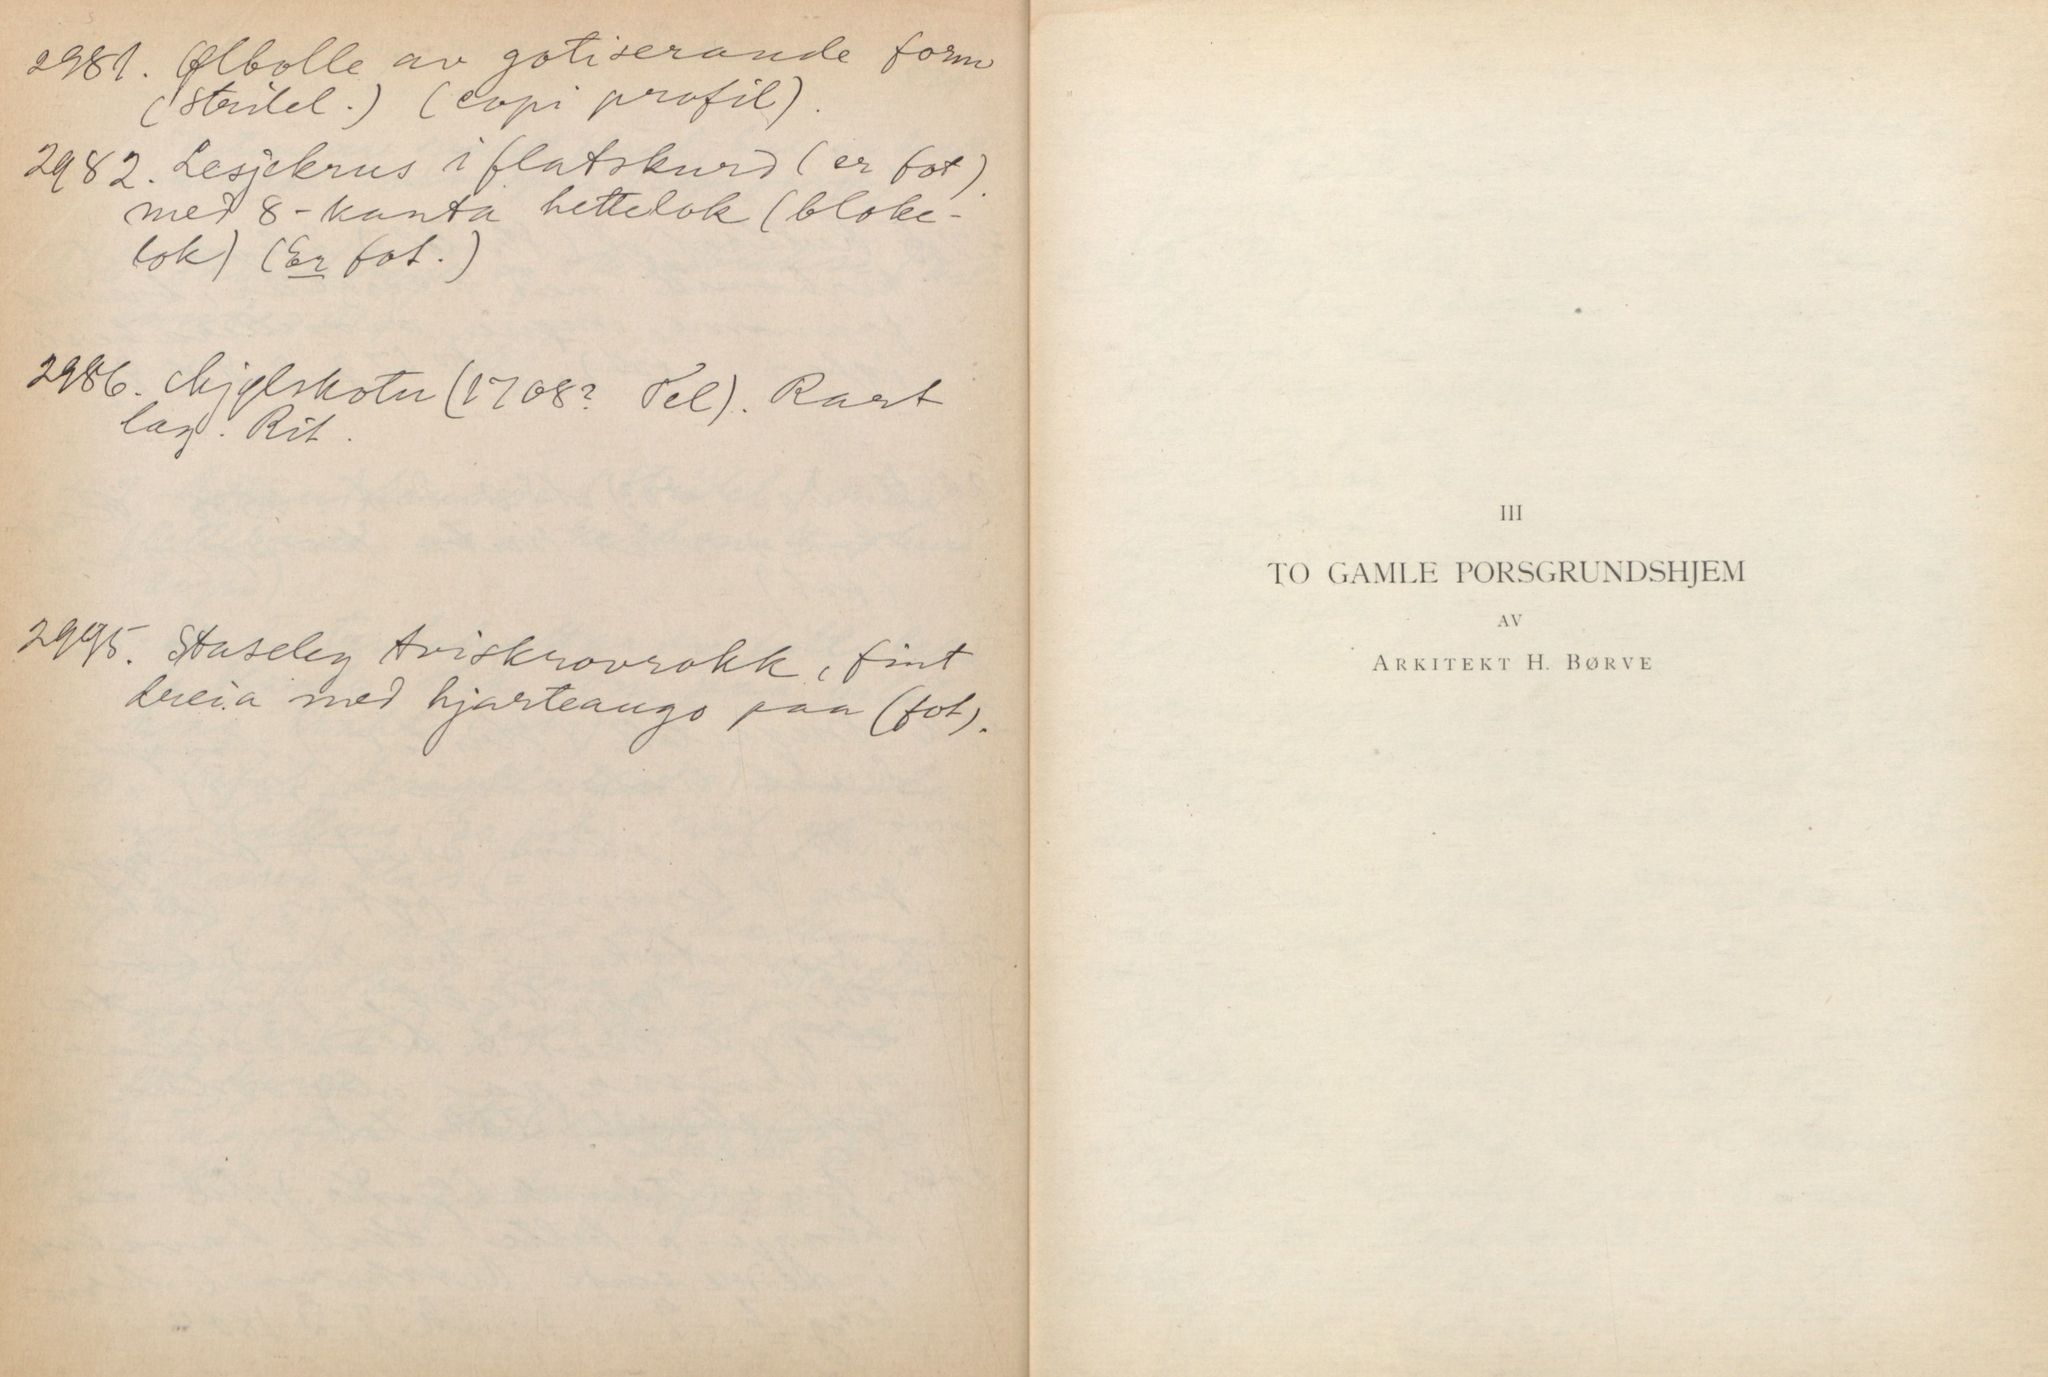 2981. Ølbolle av gotiserande form
(Stridel.) (copi profil).
2982. Lesjekrus i flatskurd (er fot).
med 8-kanta hettelok (bloke-
lok) (Er fot.)
2986. Mjølskotu (1708? Tel). Rart
lag. Rit.
2995. Staseleg tviskrovrokk, fint
dreia med hjarteaugo paa (fot).
III
TO GAMLE PORSGRUNDSHJEM
AV
ARKITEKT H. BØRVE